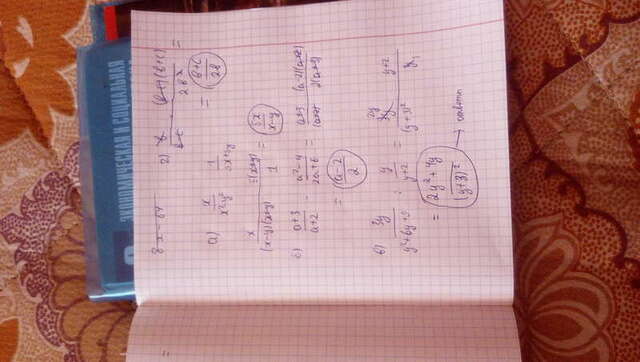 ЭКОНОМИЧЕСКАЯ И СОЦИАЛЬНАЯ
г) (b+c)(b+c) / 2b² =
= (b+c)/2b
а) x/(x²-y²) 1/(5x+5y)
x/((x-y)(x+y)) 5(x+y)/1 = 5x/(x-y)
б) (a+3)/(a+2) · (a²-4)/(2a+6) = (a+3)/(a+2) (a-2)(a+2)/2(a+3)
= (a-2)/2
в) 3y/(y²+6y+9) : y/(y+2) = 3y/(y+3)² (y+2)/y
= (2y²+4y)/(y+3)² → ответы